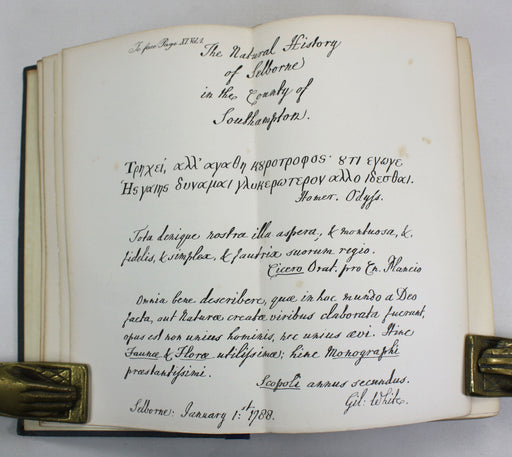 To face Page XI Vol. 1.
The Natural History
of Selborne
in the County of
Southampton.
Τρηχεῖ, αλλ' αγαθη κȣροτροφος· ȣτι εγωγε
Ης γαιης δυναμαι γλυκερωτερον αλλο ιδεσθαι.
Homer. Odyss.
Tota denique nostra illa aspera, & montuosa, &
fidelis, & simplex, & fautrix suorum regio.
Cicero Orat. pro Cn. Plancio
Omnia bene describere, quæ in hoc mundo a Deo
facta, aut Naturæ creatæ viribus elaborata fuerunt,
opus est non unius hominis, nec unius ævi. Hinc
Faunæ & Floræ utilissimæ; hinc Monographi
præstantissimi.
Scopoli annus secundus.
Gil: White.
Selborne: January 1:st 1788.